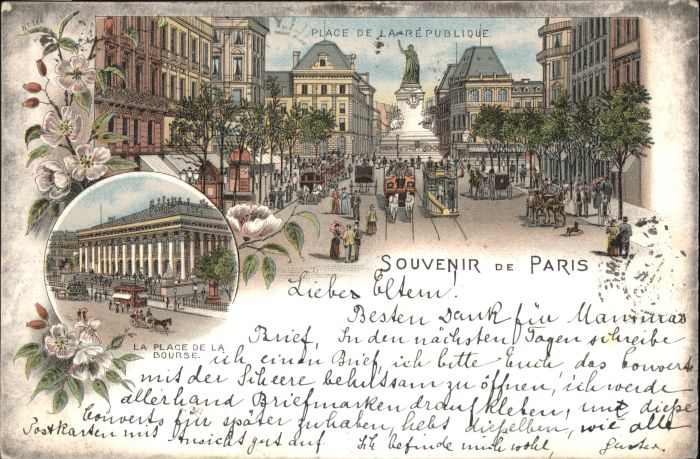 No 146
PLACE DE LA RÉPUBLIQUE.
SOUVENIR DE PARIS
LA PLACE DE LA
BOURSE.
Lieber Eltern!
Besten Dank für Mammas
Brief, In den nächsten Tagen schreibe
ich einen Brief, ich bitte Euch, das Couvert
mit der Scheere behutsam zu öffnen, ich werde
allerhand Briefmarken draufkleben, und diese
Couverts für später zu haben, hebt dieselben, wie alle
Postkarten mit Ansicht gut auf. Ich befinde mich wohl,
Gustav.